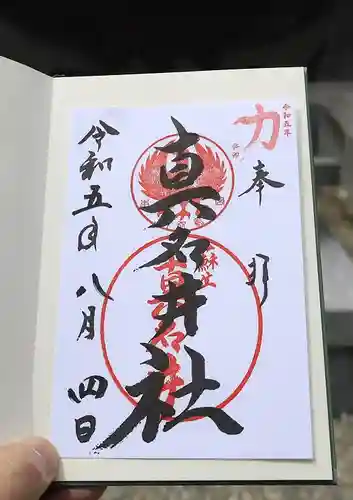 令和五年
力
奉拝
真名井社
令和五年八月四日